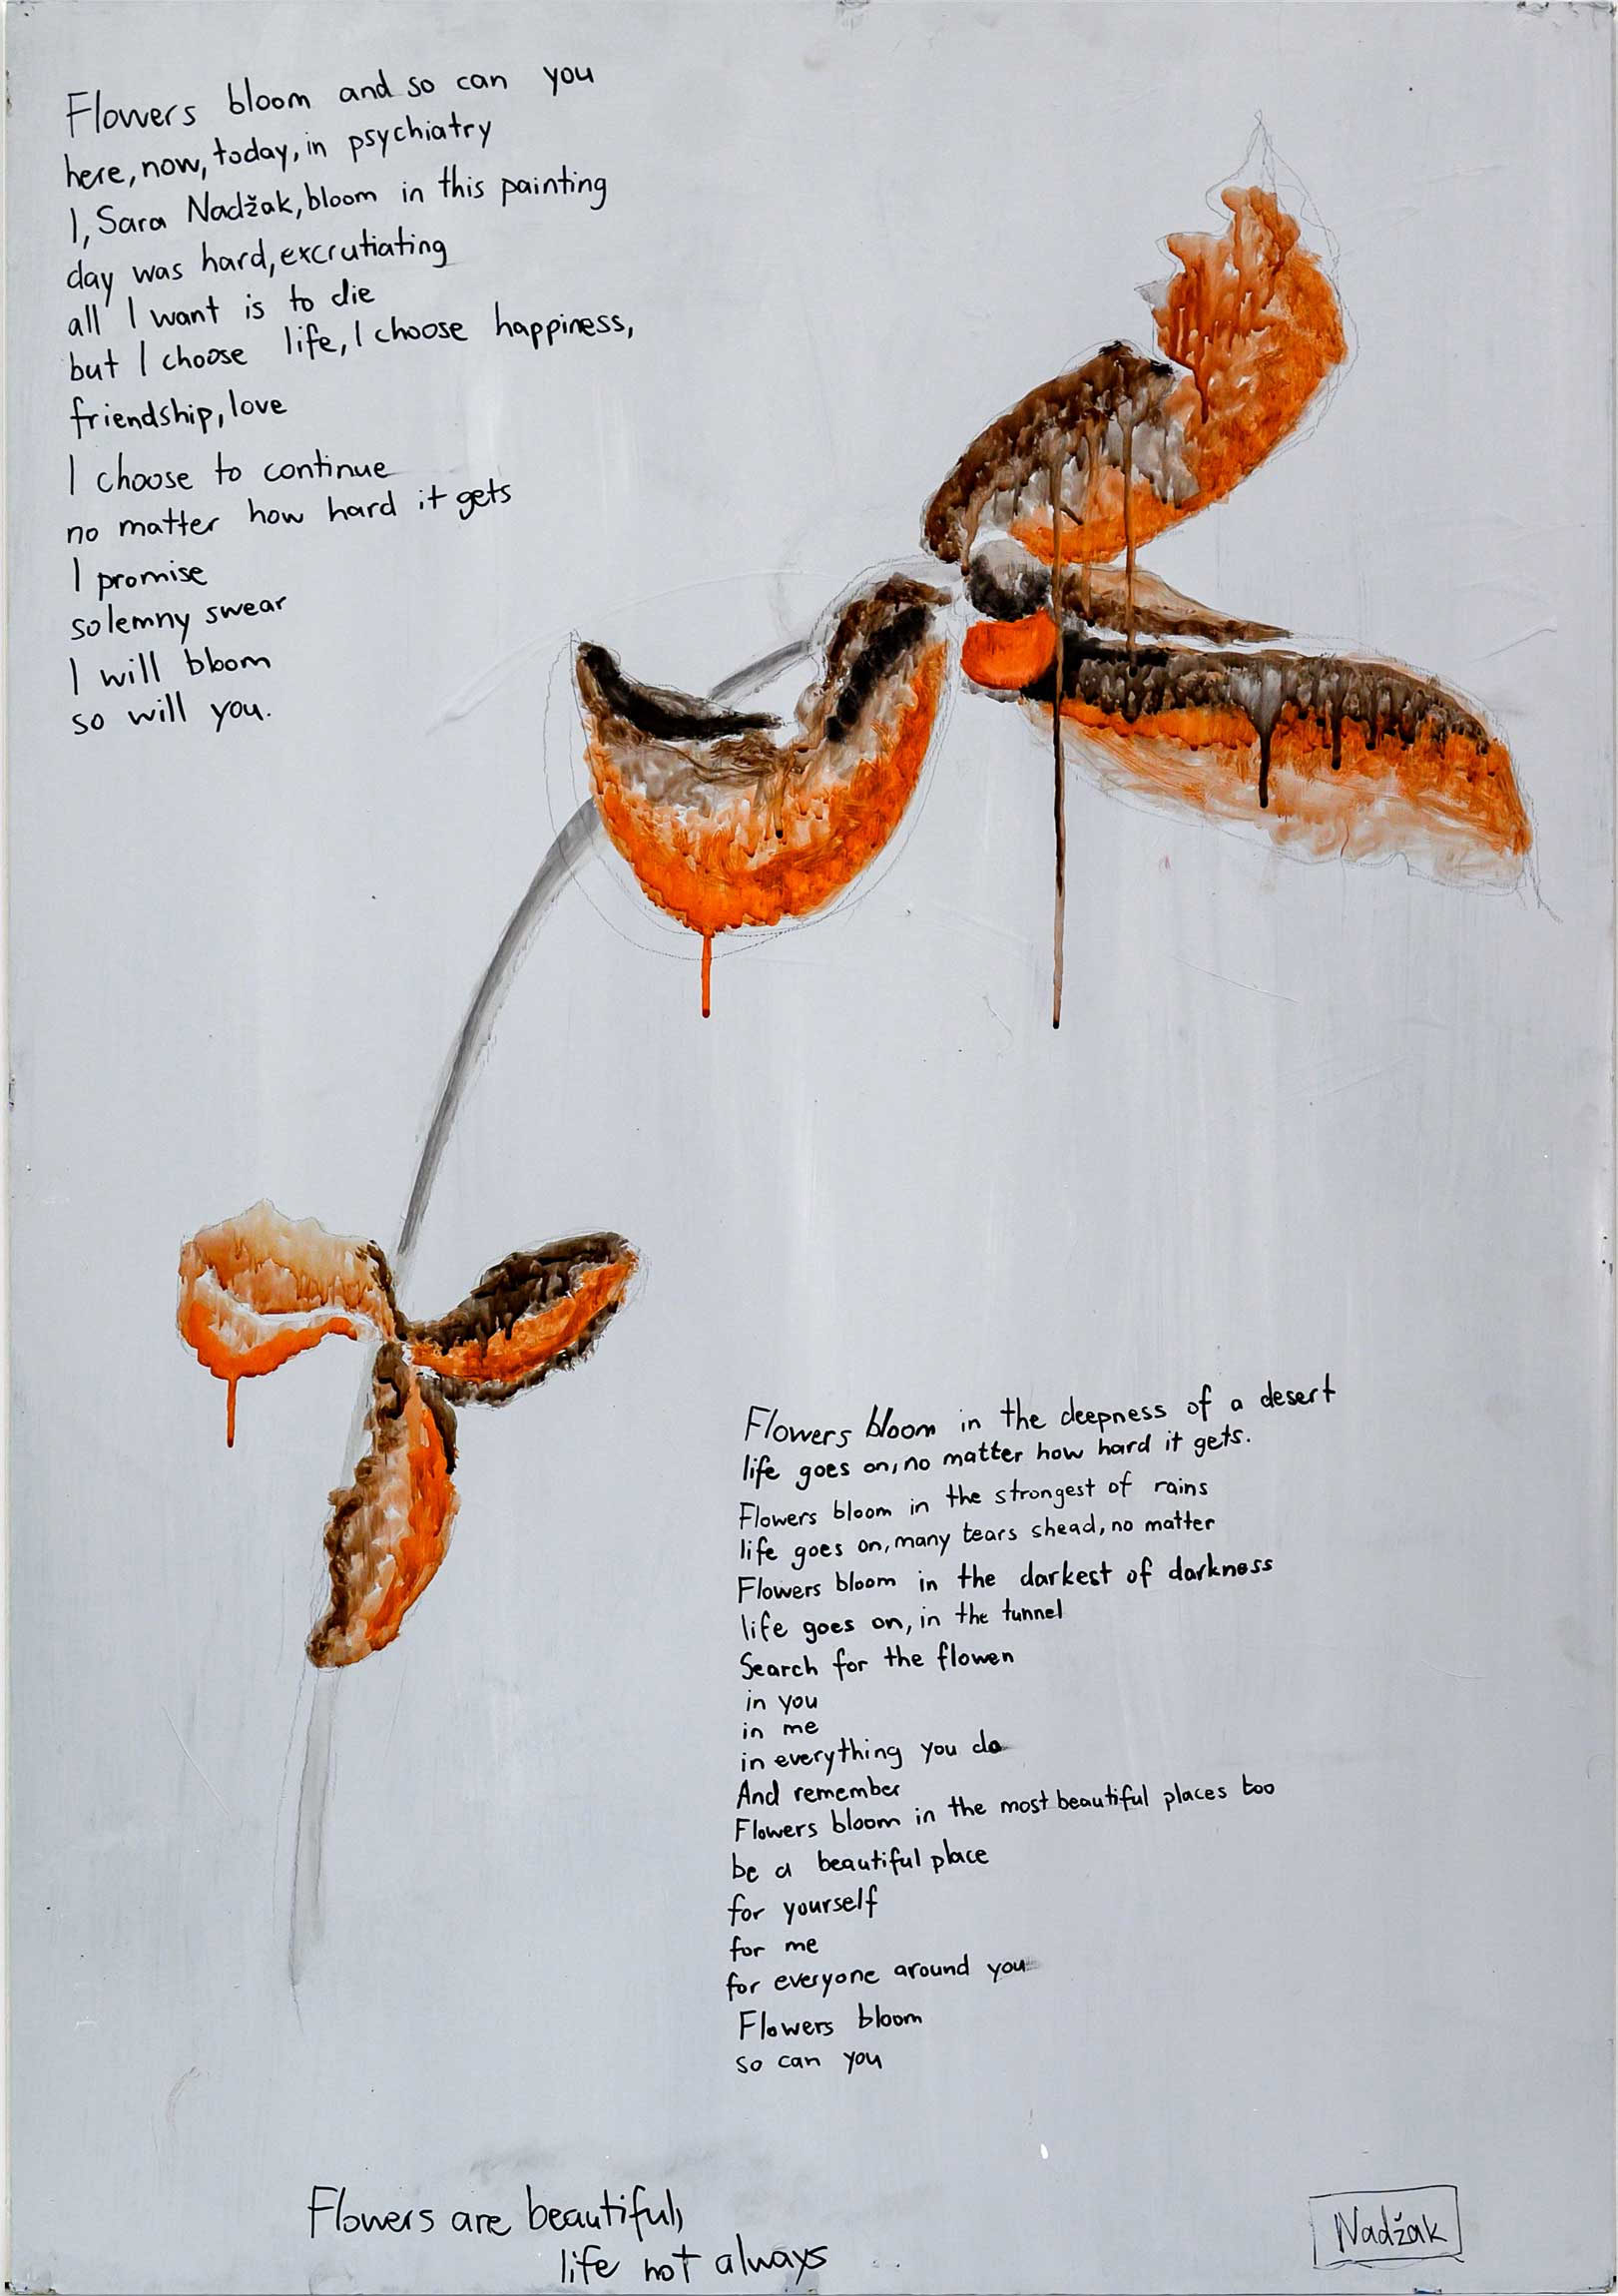 Flowers bloom and so can you
here, now, today, in psychiatry
I, Sara Nadžak, bloom in this painting
day was hard, excrutiating
all I want is to die
but I choose life, I choose happiness,
friendship, love
I choose to continue
no matter how hard it gets
I promise
solemny swear
I will bloom
so will you.
Flowers bloom in the deepness of a desert
life goes on, no matter how hard it gets.
Flowers bloom in the strongest of rains
life goes on, many tears shead, no matter
Flowers bloom in the darkest of darkness
life goes on, in the tunnel
Search for the flower
in you
in me
in everything you do
And remember
Flowers bloom in the most beautiful places too
be a beautiful place
for yourself
for me
for everyone around you
Flowers bloom
so can you
Flowers are beautiful,
life not always
Nadžak